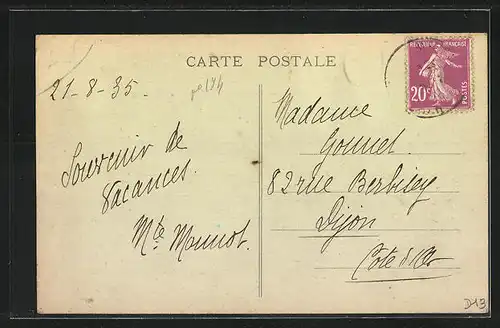 CARTE POSTALE
RÉPUBLIQUE FRANÇAISE
20c
POSTES
21-8-35.
Souvenir de
Vacances.
Mte Monnot.
Madame
Gounet
82 rue Berbisey
Dijon
Côte d'Or